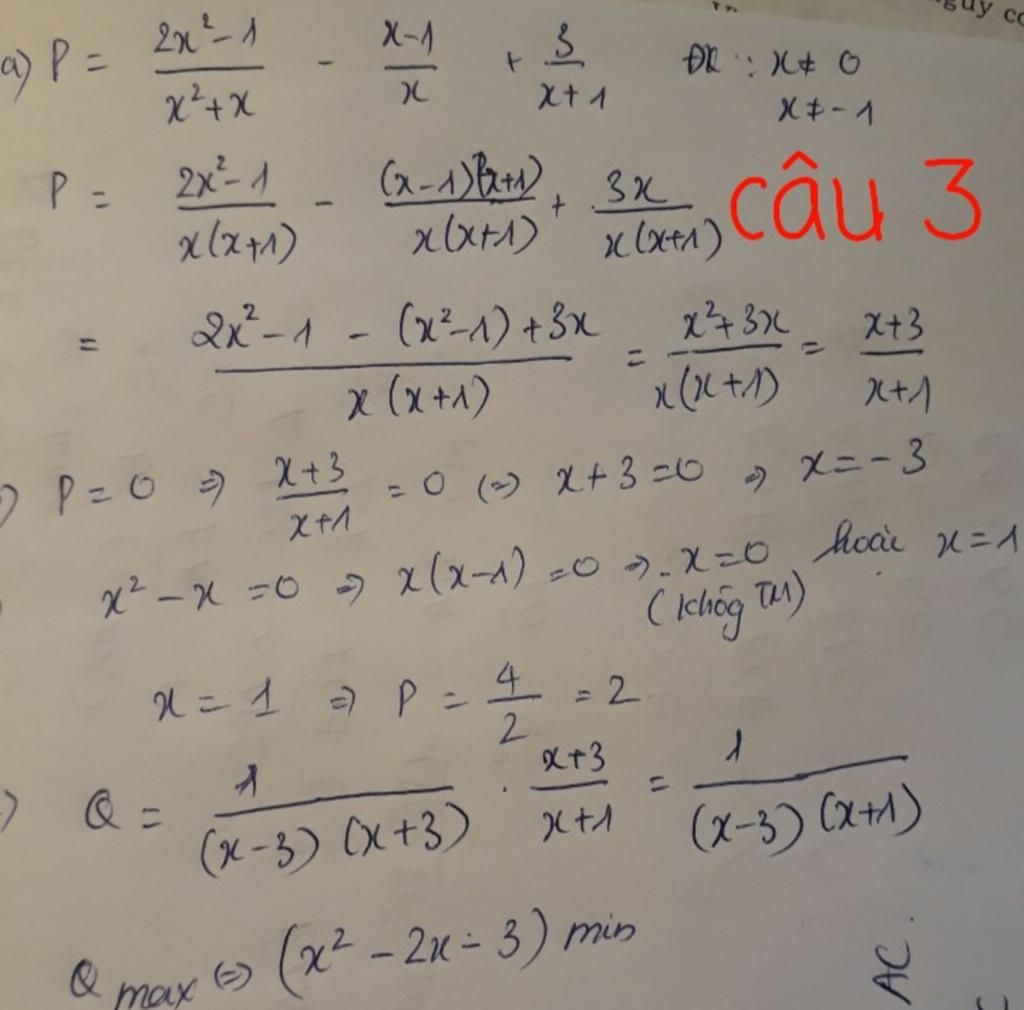 a) P = \frac{2x^2-1}{x^2+x} - \frac{x-1}{x} + \frac{3}{x+1} ĐK : x ≠ 0
x ≠ -1
P = \frac{2x^2-1}{x(x+1)} - \frac{(x-1)(x+1)}{x(x+1)} + \frac{3x}{x(x+1)} câu 3
= \frac{2x^2-1 - (x^2-1) + 3x}{x(x+1)} = \frac{x^2+3x}{x(x+1)} = \frac{x+3}{x+1}
) P = 0 ⇒ \frac{x+3}{x+1} = 0 (⇒) x+3 = 0 ⇒ x = -3
x^2 - x = 0 ⇒ x(x-1) = 0 ⇒ x = 0 hoặc x = 1
(Khôg TM)
x = 1 ⇒ P = \frac{4}{2} = 2
) Q = \frac{1}{(x-3)(x+3)} . \frac{x+3}{x+1} = \frac{1}{(x-3)(x+1)}
Q max ⇔ (x^2 - 2x - 3) min
AC.